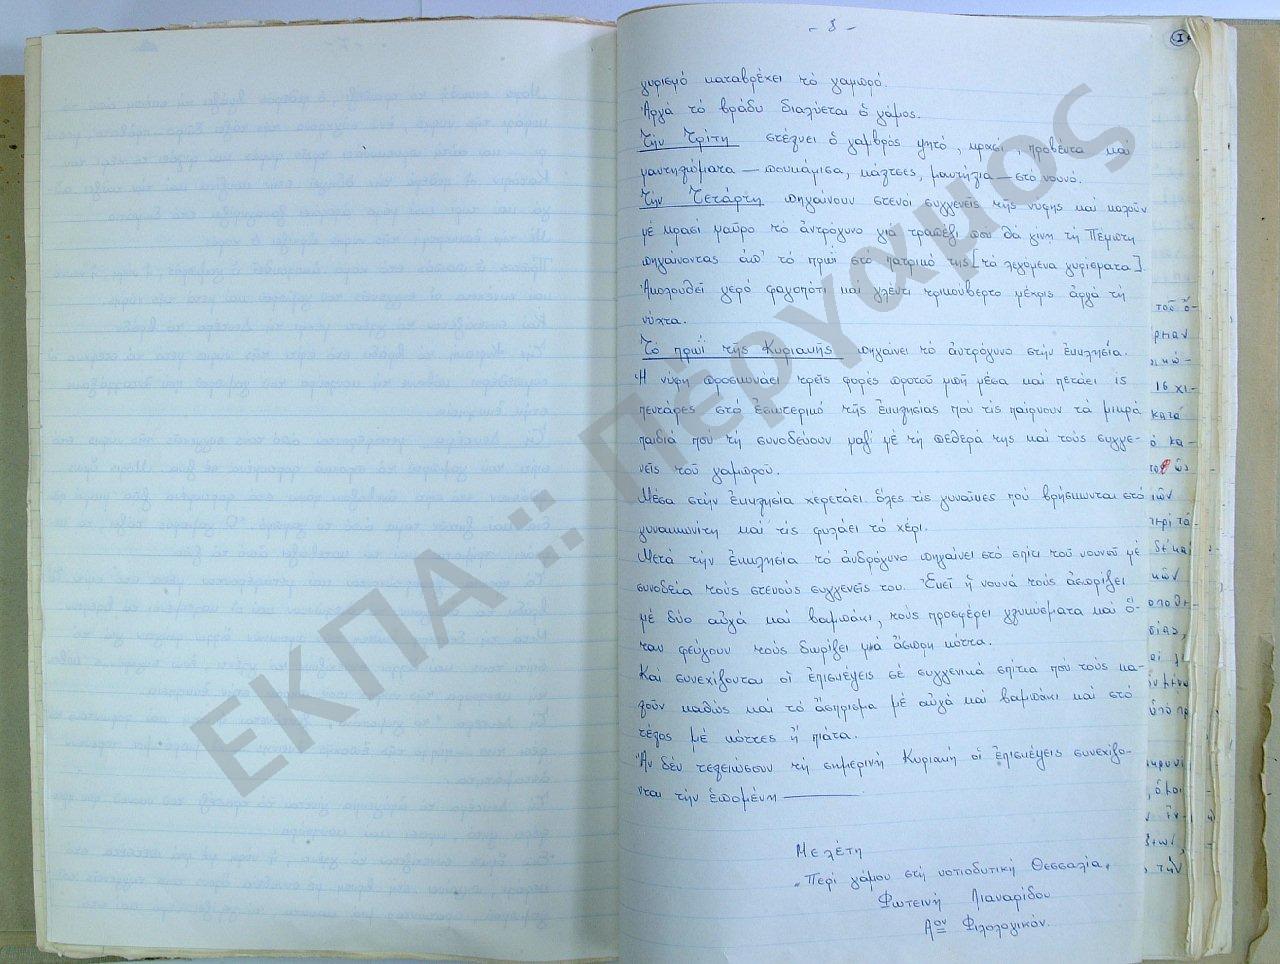 - 8 -
γυρισμό καταβρέχει τό γαμπρό.
Ἀργά τό βράδυ διαλύεται ὁ γάμος.
Τήν Τρίτη στέλνει ὁ γαμβρός ψητό, κρασί, προβέντα καί
μαντηλώματα — πουκάμισα, κάλτσες, μαντήλια — στό νουνό.
Τήν Τετάρτη πηγαίνουν στενοί συγγενείς τῆς νύφης καί καλοῦν
μέ κρασί μαῦρο τό ἀντρόγυνο γιά τραπέζι που θά γινη τή Πέμπτη
πηγαίνοντας ἀπ' τό πρωΐ στο πατρικό της [τό λεγόμενα γυρίσματα].
Ἀκολουθεῖ γερό φαγοπότι καί γλέντι τρικούβερτο μέχρις ἀργά τή
νύχτα.
Τό πρωΐ τῆς Κυριακῆς πηγαίνει τό ἀντρόγυνο στήν ἐκκλησία.
Ἡ νύφη προσκυνάει τρεῖς φορές προτοῦ μπῆ μέσα καί πετάει ις
πεντάρες στό ἐσωτερικό τῆς ἐκκλησίας πού τις παίρνουν τά μικρά
παιδιά που τή συνοδεύουν μαζί μέ τή πεθερά της καί τούς συγγε-
νεῖς τοῦ γαμπροῦ.
Μέσα στήν ἐκκλησία χερετάει ὅλες τίς γυναῖκες πού βρήσκωνται στό
γυναικωνίτη καί τίς φυλάει τό χέρι.
Μετά τήν ἐκκλησία τό ἀνδρόγυνο πηγαίνει στό σπίτι τοῦ νουνοῦ μέ
συνοδεία τούς στενούς συγγενεῖς του. Ἐκεῖ ἡ νουνά τούς ἀσπρίζει
μέ δύο αὐγά καί βαμπάκι, τούς προσφέρει γλυκισματα καί ὅ-
ταν φεύγουν τούς δωρίζει μιά ἄσπρη κόττα.
Καί συνεχίζονται οἱ ἐπισκέψεις σέ συγγενικά σπίτια πού τούς κα-
λοῦν καθώς καί τό ἄσπρισμα μέ αὐγά καί βαμπάκι καί στό
τέλος μέ κόττες ἤ πιάτα.
Ἄν δέν τελειώσουν τή σημερινή Κυριακή οἱ ἐπισκέψεις συνεχίζο-
νται τήν ἑπομένη —
Μελέτη
„Περί γάμου στή νοτιοδυτική Θεσσαλία„
Φωτεινή Λιαναρίδου
Αον Φιλολογικόν.
ΕΚΠΑ :: Πέργαμος